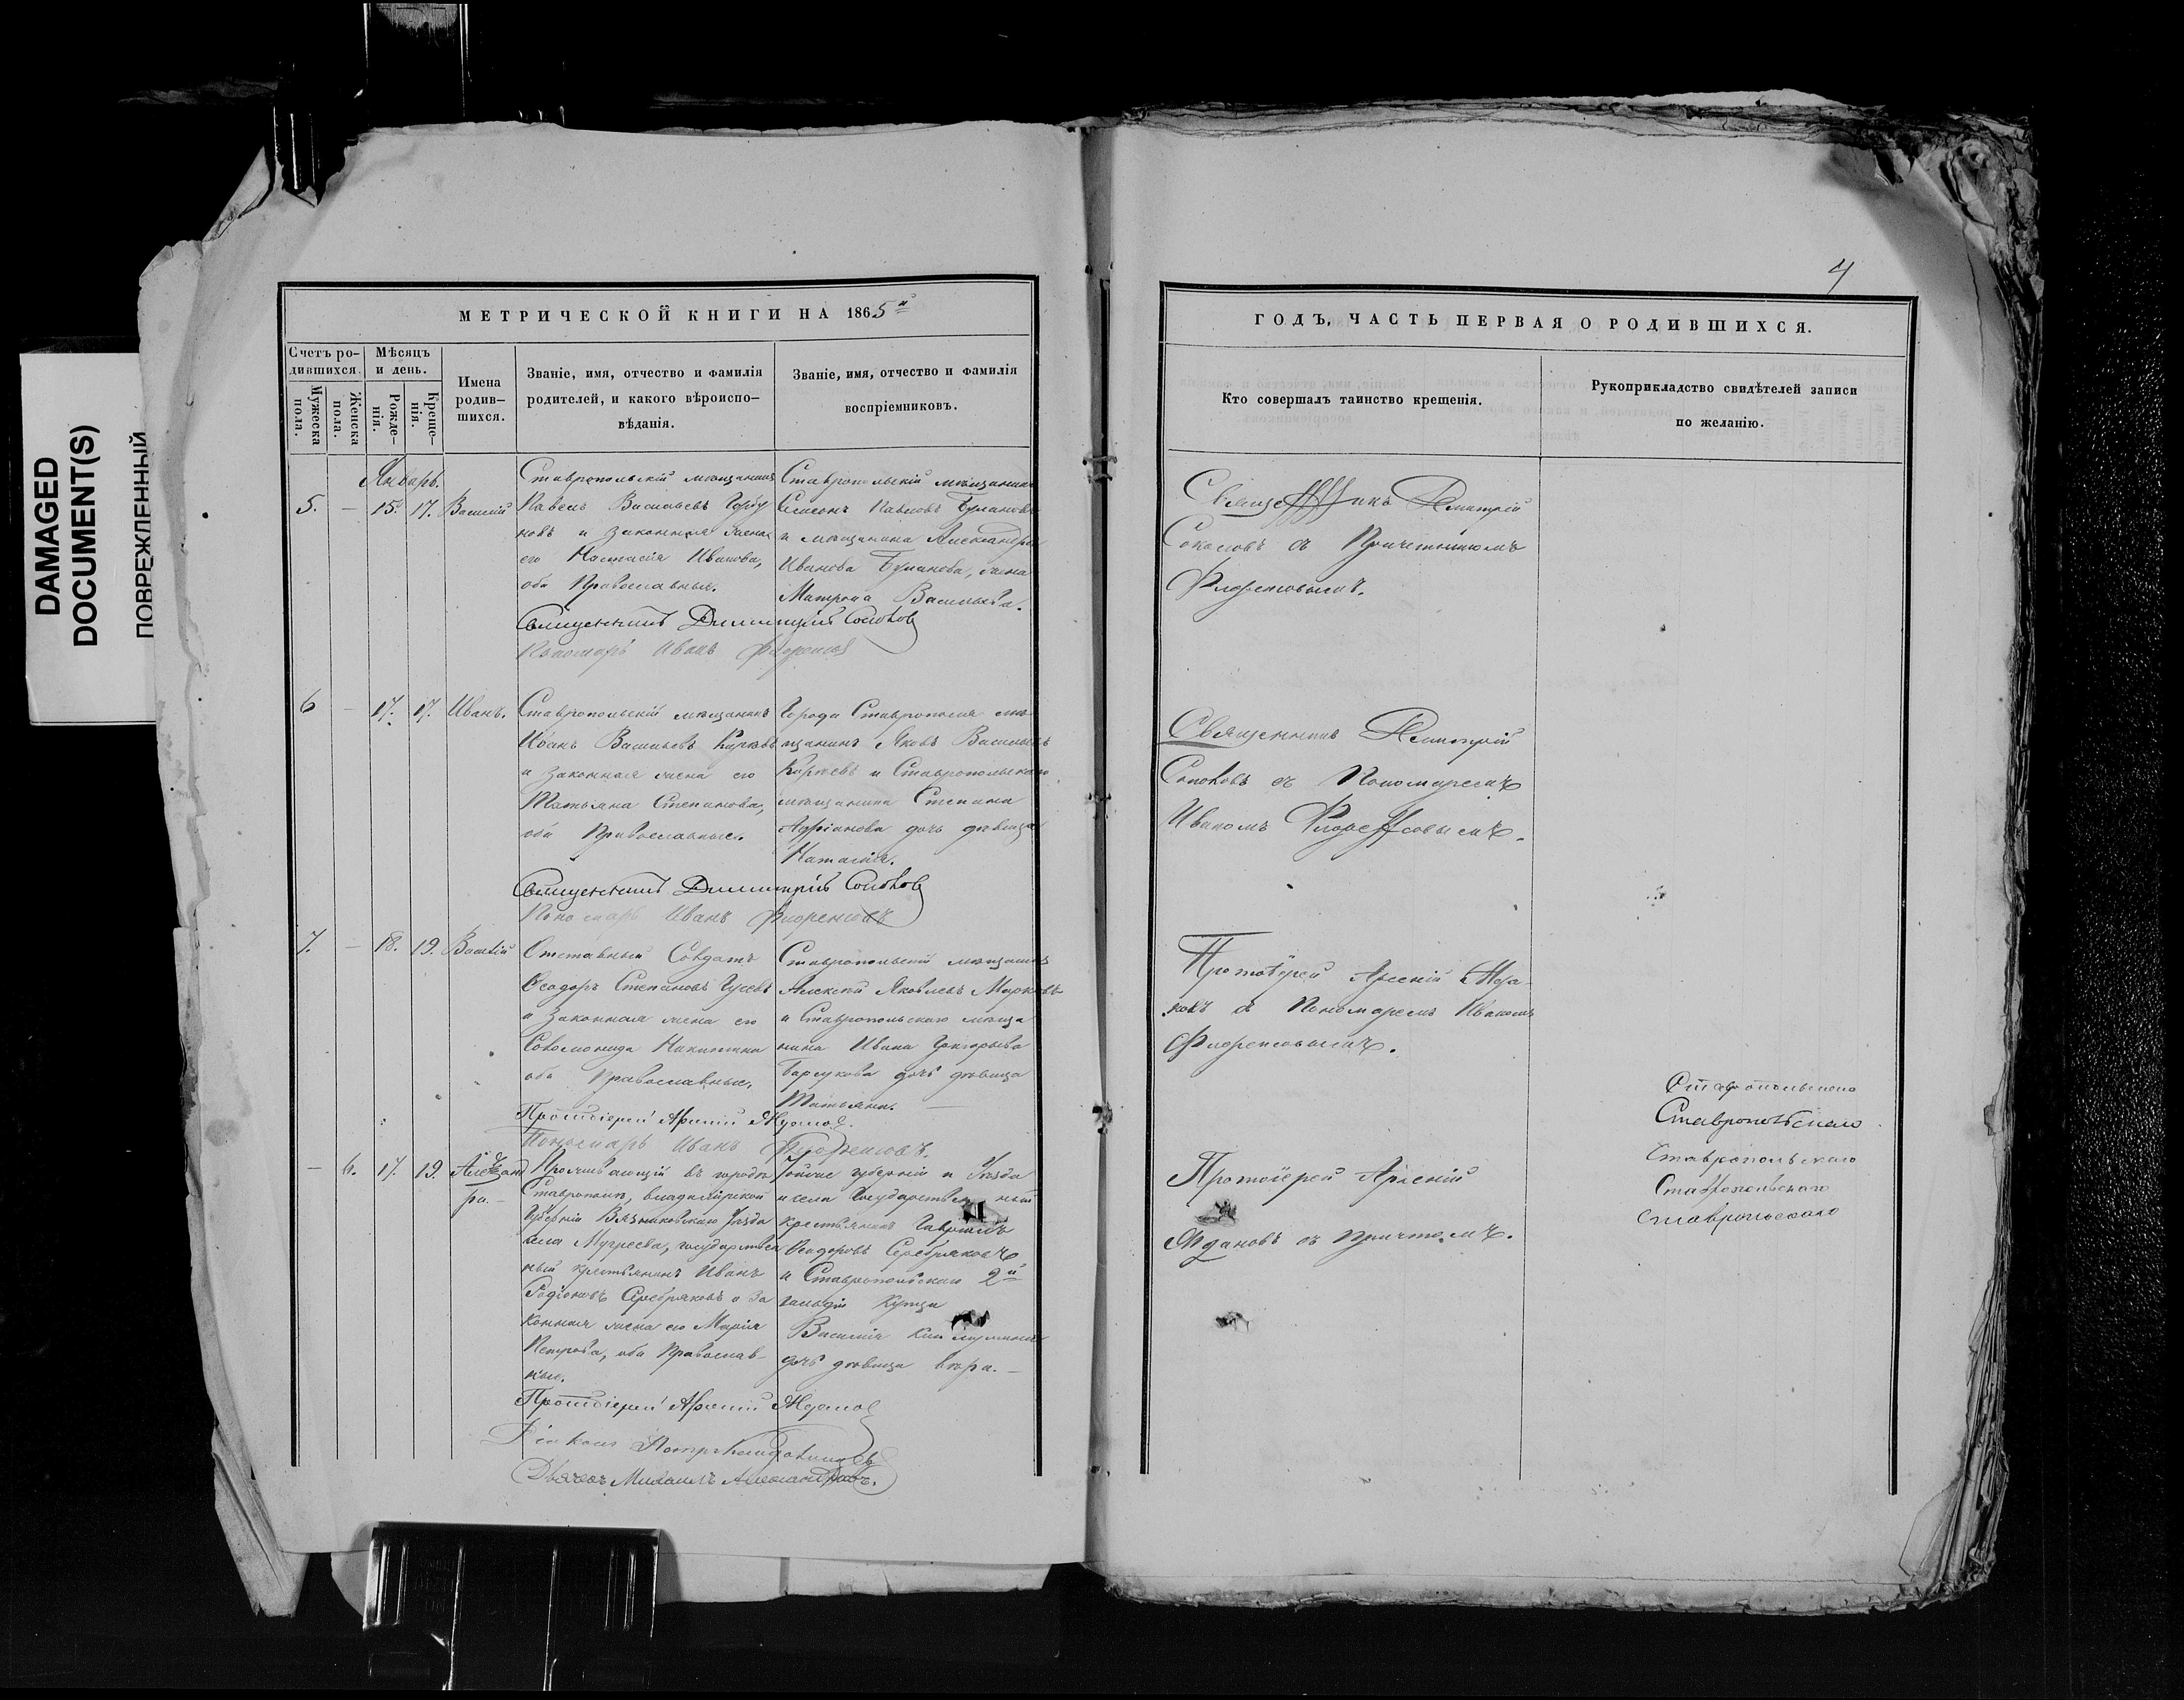 DAMAGED
DOCUMENT(S)
ПОВРЕЖДЕННЫЙ
МЕТРИЧЕСКОЙ КНИГИ НА 1865й
Счетъ ро-
дившихся.
Мужеска
пола.
Женска
пола.
Мѣсяцъ
и день.
Рожде-
нія.
Креще-
нія.
Имена
родив-
шихся.
Званіе, имя, отчество и фамилія
родителей, и какого вѣроиспо-
вѣданія.
Званіе, имя, отчество и фамилія
воспріемниковъ.
Январь.
5. – 15. 17. Василій
Ставропольскій мѣщанинъ
Павелъ Васильевъ
и законная жена
его Настасія Иванова,
оба Православные.
Ставропольскій мѣщанинъ
Павловъ
и мѣщанина Александра
Иванова жена
Матрона Васильева.
Священникъ Димитрій Соколовъ
Пономарь Иванъ Флоренсовъ
6 – 17. 17. Иванъ.
Ставропольскій мѣщанинъ
Иванъ Васильевъ
и законная жена его
Татьяна Степанова,
оба Православные.
Города Ставрополя мѣ-
щанинъ Яковъ Васильевъ
и Ставропольскаго
мѣщанина Степана
Адріанова дочь дѣвица
Священникъ Димитрій Соколовъ
Пономарь Иванъ Флоренсовъ
7. – 18. 19. Василій
Отставный Солдатъ
Ѳеодоръ Степановъ Гусевъ
и законная жена его
Соломонида Никитина
оба Православные.
Ставропольскій мѣщанинъ
Алексѣй Яковлевъ Марковъ
и Ставропольскаго мѣща
нина Ивана Григорьева
Барсукова дочь дѣвица
Татьяна. –
Протоіерей Арсеній Ждановъ.
Пономарь Иванъ Флоренсовъ.
– 6. 17. 19. Александ
ра. –
Проживающій въ городѣ
Ставрополѣ, Владимірской
Губерніи Вязниковскаго Уѣзда
села Мугреева, государствен
ный крестьянинъ Иванъ
Родіоновъ Серебряковъ и за
конная жена его Марія
Петрова, оба Православ-
ные.
губерніи и Уѣзда
села Государственный
крестьянинъ Гавріилъ
Ѳеодоровъ Серебряковъ
и Ставропольскаго 2й
гильдіи купца
Василія
дочь дѣвица Вѣра. –
Протоіерей Арсеній Ждановъ
Діаконъ Петръ
Дьячекъ Михаилъ Александровъ.
4
ГОДЪ, ЧАСТЬ ПЕРВАЯ О РОДИВШИХСЯ.
Кто совершалъ таинство крещенія.
Рукоприкладство свидѣтелей записи
по желанію.
Священникъ Димитрій
Соколовъ съ Причетникомъ
Флоренсовымъ.
Священникъ Димитрій
Соколовъ съ Пономаремъ
Иваномъ Флоренсовымъ.
Протоіерей Арсеній Жда-
новъ съ Пономаремъ Иваномъ
Флоренсовымъ.
Протоіерей Арсеній
Ждановъ съ Причтомъ.
Ставропольскаго
Ставропольскаго
Ставропольскаго
Ставропольскаго
Ставропольскаго